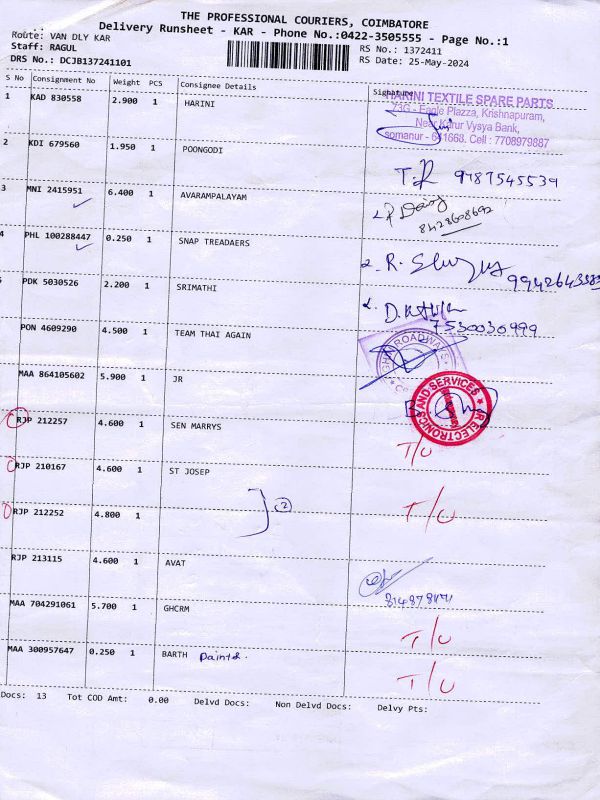 THE PROFESSIONAL COURIERS, COIMBATORE
Delivery Runsheet - KAR - Phone No.:0422-3505555 - Page No.:1
Route: VAN DLY KAR
RS No.: 1372411
Staff: RAGUL
RS Date: 25-May-2024
DRS No.: DCJB137241101
S No Consignment No Weight PCS Consignee Details Signature
1 KAD 830558 2.900 1 HARINI
HARINI TEXTILE SPARE PARTS
73G - Eagle Plazza, Krishnapuram,
Near Karur Vysya Bank,
somanur - 641668. Cell : 7708979887
2 KDI 679560 1.950 1 POONGODI
T.R 9787545539
3 MNI 2415951 6.400 1 AVARAMPALAYAM
P Daisy
8428608692
4 PHL 100288447 0.250 1 SNAP TREADAERS
R.
PDK 5030526 2.200 1 SRIMATHI
7530030999
PON 4609290 4.500 1 TEAM THAI AGAIN
ROADWAYS
MAA 864105602 5.900 1 JR
JR ELECTRONICS AND SERVICES
RJP 212257 4.600 1 SEN MARRYS
T/U
RJP 210167 4.600 1 ST JOSEP
T/U
RJP 212252 4.800 1
2
RJP 213115 4.600 1 AVAT
MAA 704291061 5.700 1 GHCRM
T/U
MAA 300957647 0.250 1 BARTH Paints.
T/U
Docs: 13 Tot COD Amt: 0.00 Delvd Docs: Non Delvd Docs: Delvy Pts: